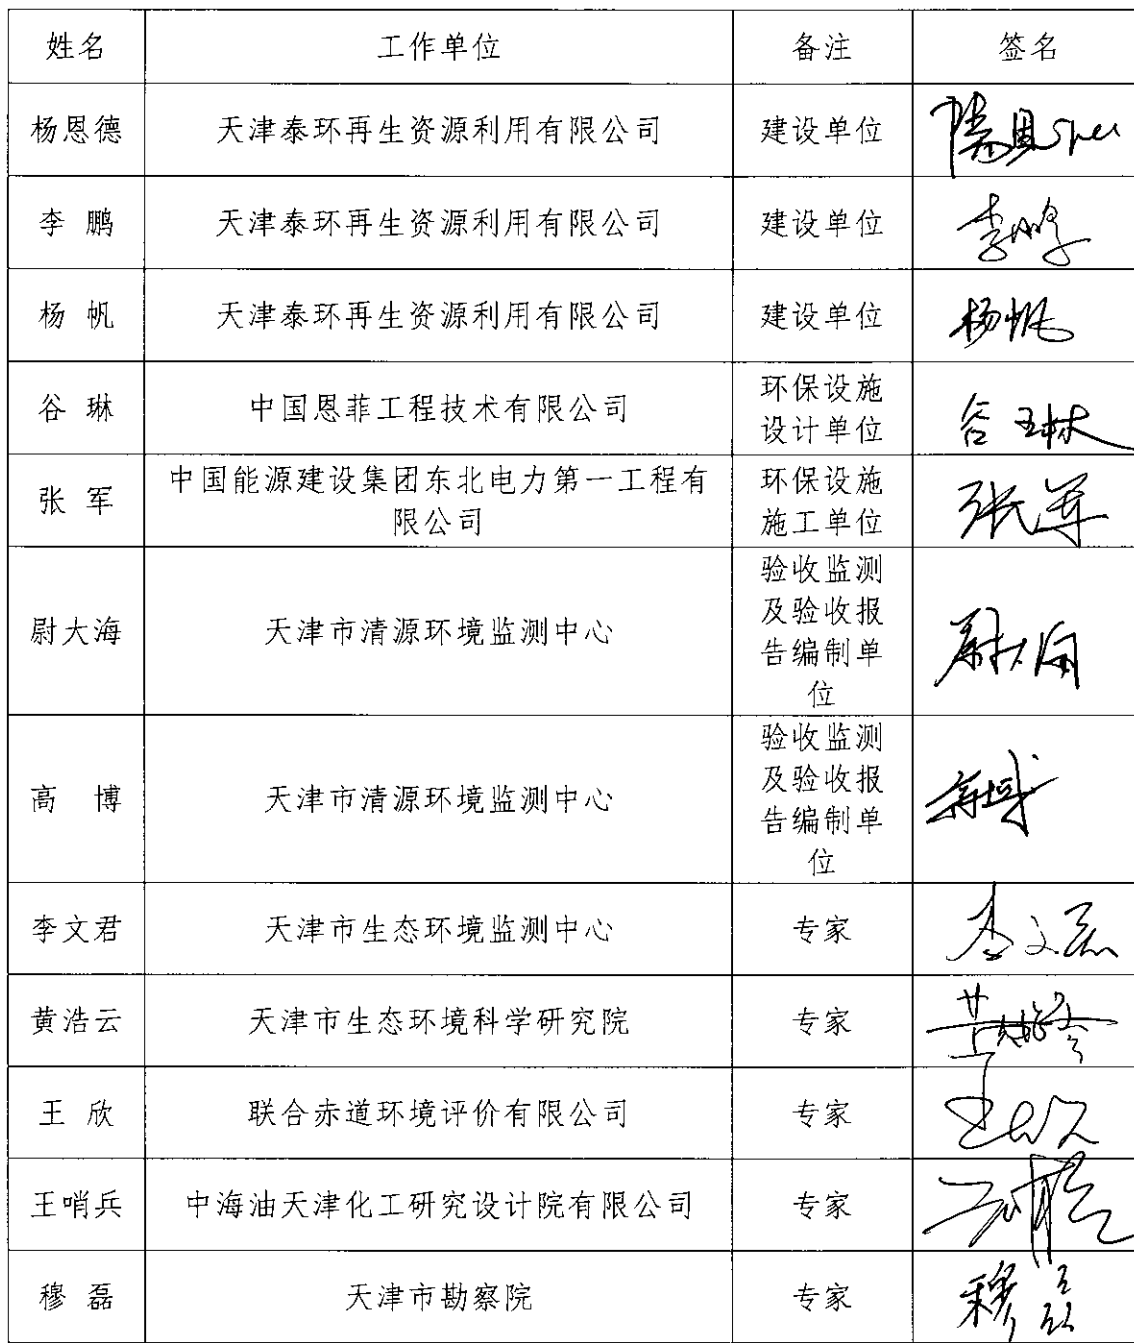 姓名 工作单位 备注 签名
杨恩德 天津泰环再生资源利用有限公司 建设单位
李鹏 天津泰环再生资源利用有限公司 建设单位 李鹏
杨帆 天津泰环再生资源利用有限公司 建设单位 杨帆
谷琳 中国恩菲工程技术有限公司 环保设施 谷琳
设计单位
张军 中国能源建设集团东北电力第一工程有 环保设施 张军
限公司 施工单位
尉大海 天津市清源环境监测中心 验收监测 尉大海
及验收报
告编制单
位
高博 天津市清源环境监测中心 验收监测 高博
及验收报
告编制单
位
李文君 天津市生态环境监测中心 专家 李文君
黄浩云 天津市生态环境科学研究院 专家 黄浩云
王欣 联合赤道环境评价有限公司 专家 王欣
王哨兵 中海油天津化工研究设计院有限公司 专家
穆磊 天津市勘察院 专家 穆磊